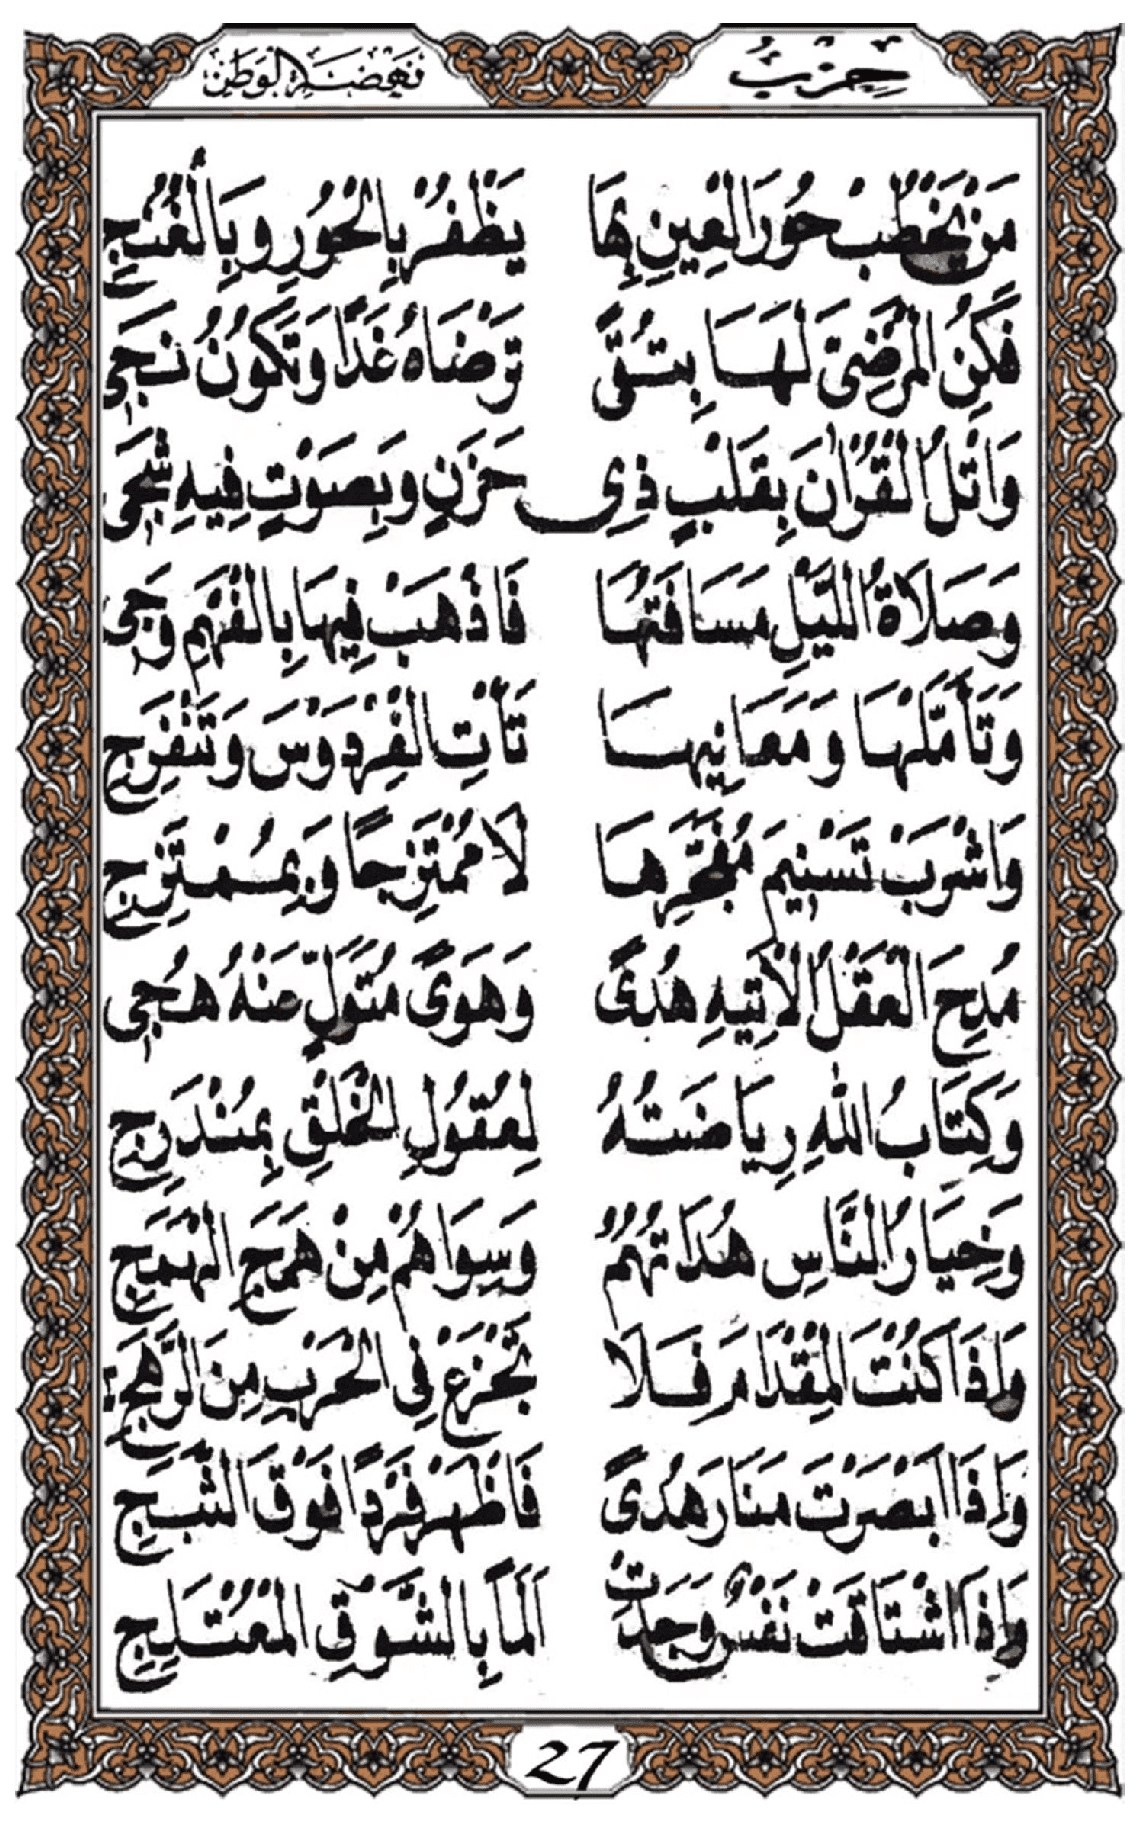 حِزْبُ نَهْضَةِ الْوَطَنْ
مَنْ يَخْطُبْ حُوْرَ الْعِيْنِ بِهَا يَظْفُرْ بِالْحُوْرِ وَبِالْغُنُجِ
فَكُنِ الْمَرْضِىَّ لَهَا بِتُقًى تَرْضَاهُ غَدًا وَتَكُوْنُ نَجِى
وَاتْلُ الْقُرْاٰنَ بِقَلْبٍ ذِى حَزَنٍ وَبِصَوْتٍ فِيْهِ شَجِى
وَصَلَاةُ اللَّيْلِ مَسَافَتُهَا فَاذْهَبْ فِيْهَا بِالْفَهْمِ وَجِى
وَتَأَمَّلْهَا وَمَعَانِيْهَا تَأْتِ الْفِرْدَوْسَ وَتَنْفَرِجِ
وَاشْرَبْ تَسْنِيْمَ مُفَجَّرِهَا لَا مُمْتَزِجًا وَبِمُمْتَزِجِ
مُدِحَ الْعَقْلُ الْاٰتِيْهِ هُدًى وَهَوًى مُتَوَلٍّ عَنْهُ هُجِى
وَكِتَابُ اللهِ رِيَاضَتُهُ لِعُقُوْلِ الْخَلْقِ بِمُنْدَرِجِ
وَخِيَارُ النَّاسِ هُدَاتُهُمُ وَسِوَاهُمْ مِنْ هَمَجِ الْهَمَجِ
وَاِذَا كُنْتَ الْمِقْدَامَ فَلَا تَجْزَعْ فِى الْحَرْبِ مِنَ الرَّهَجِ
وَاِذَا اَبْصَرْتَ مَنَارَ هُدًى فَاظْهَرْ فَرْدًا فَوْقَ الثَّبَجِ
وَاِذَا اشْتَاقَتْ نَفْسٌ وَجَدَتْ اَلَمًا بِالشَّوْقِ الْمُعْتَلِجِ
27